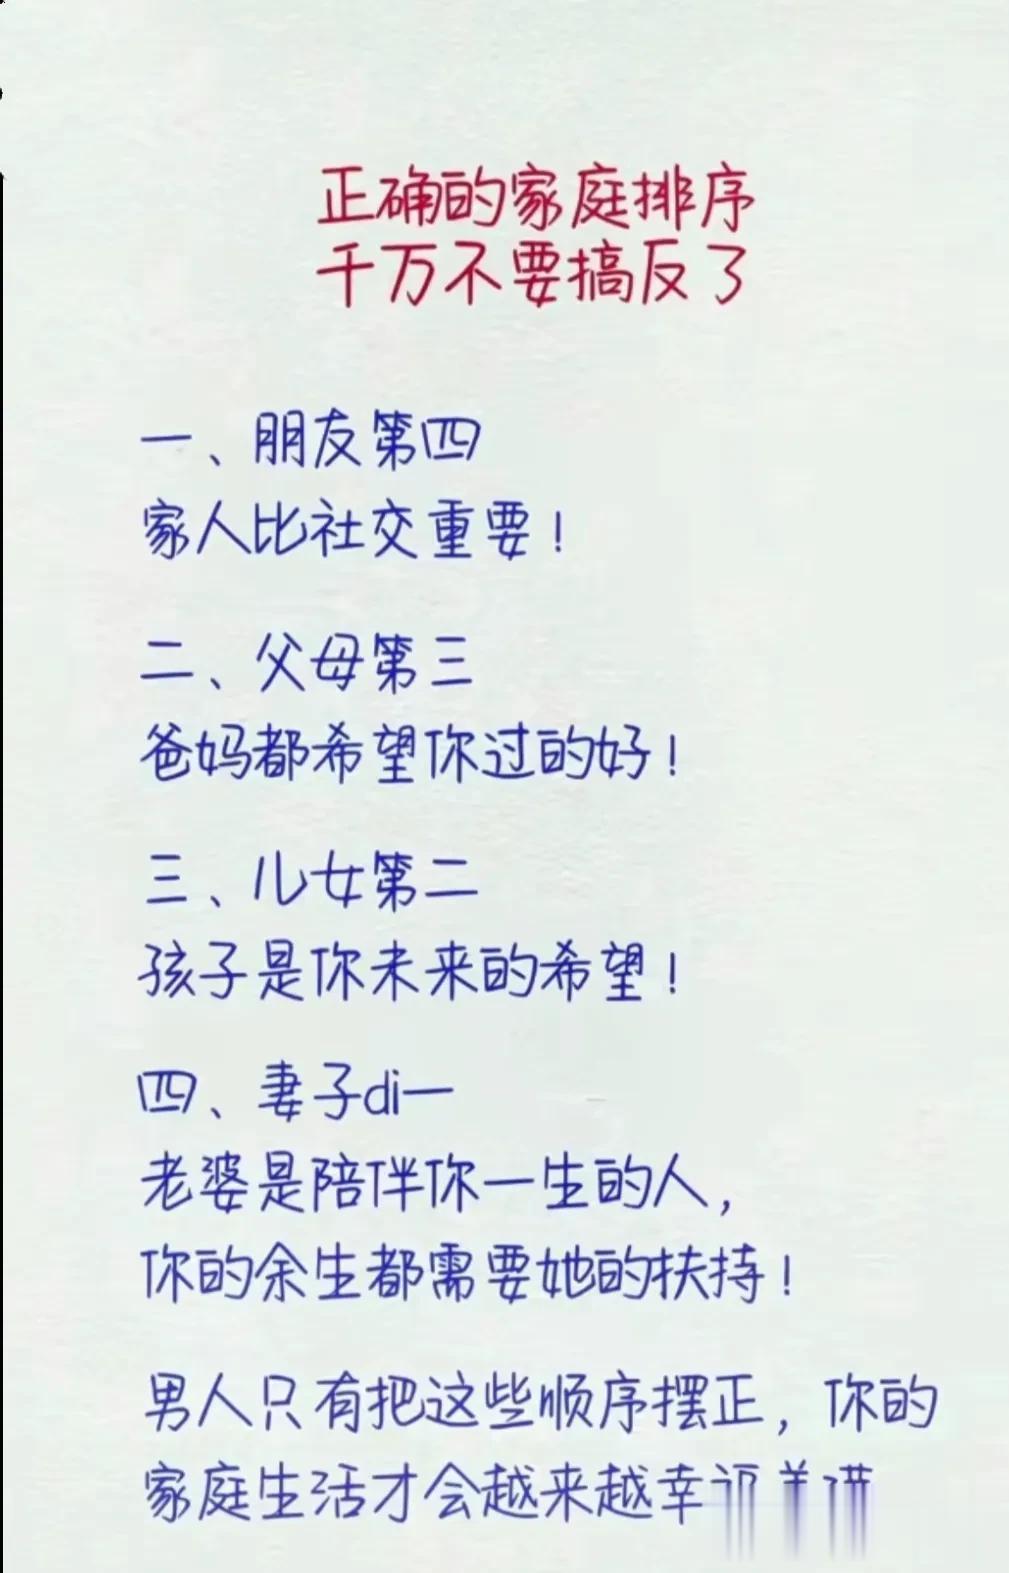 正确的家庭排序
千万不要搞反了
一、朋友第四
家人比社交重要！
二、父母第三
爸妈都希望你过的好！
三、儿女第二
孩子是你未来的希望！
四、妻子di一
老婆是陪伴你一生的人，
你的余生都需要她的扶持！
男人只有把这些顺序摆正，你的
家庭生活才会越来越幸